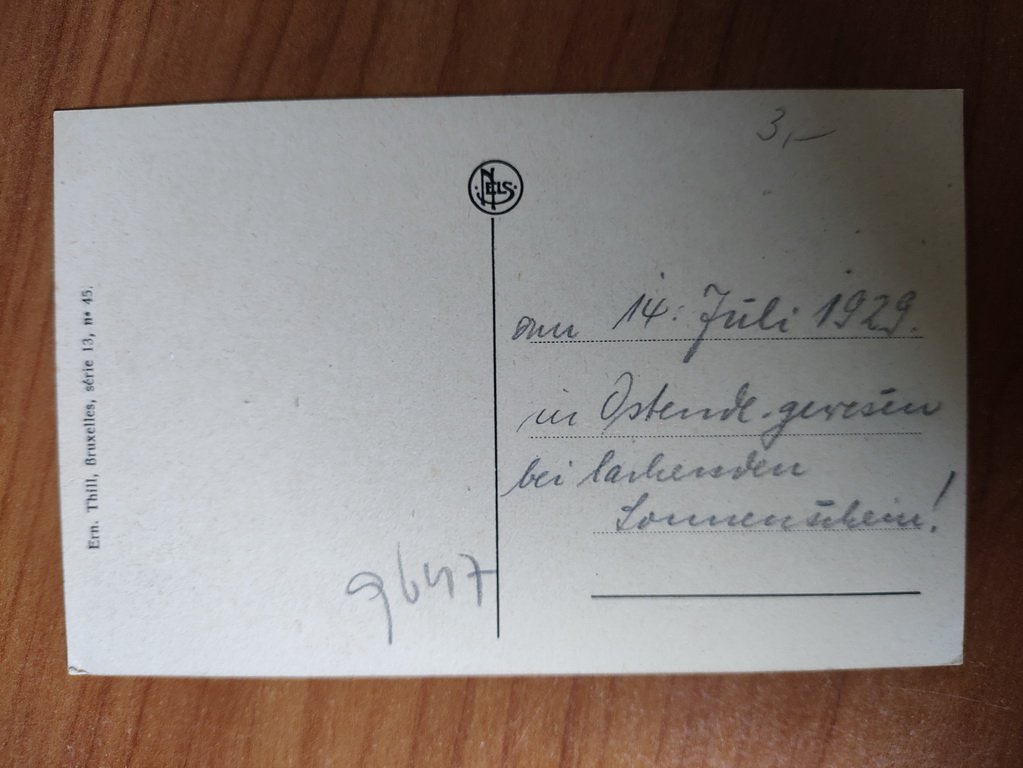 3,–
NELS
am 14. Juli 1929.
in Ostende gewesen
bei lachenden
Sonnenschein!
Ern. Thill, Bruxelles, série 13, n° 45.